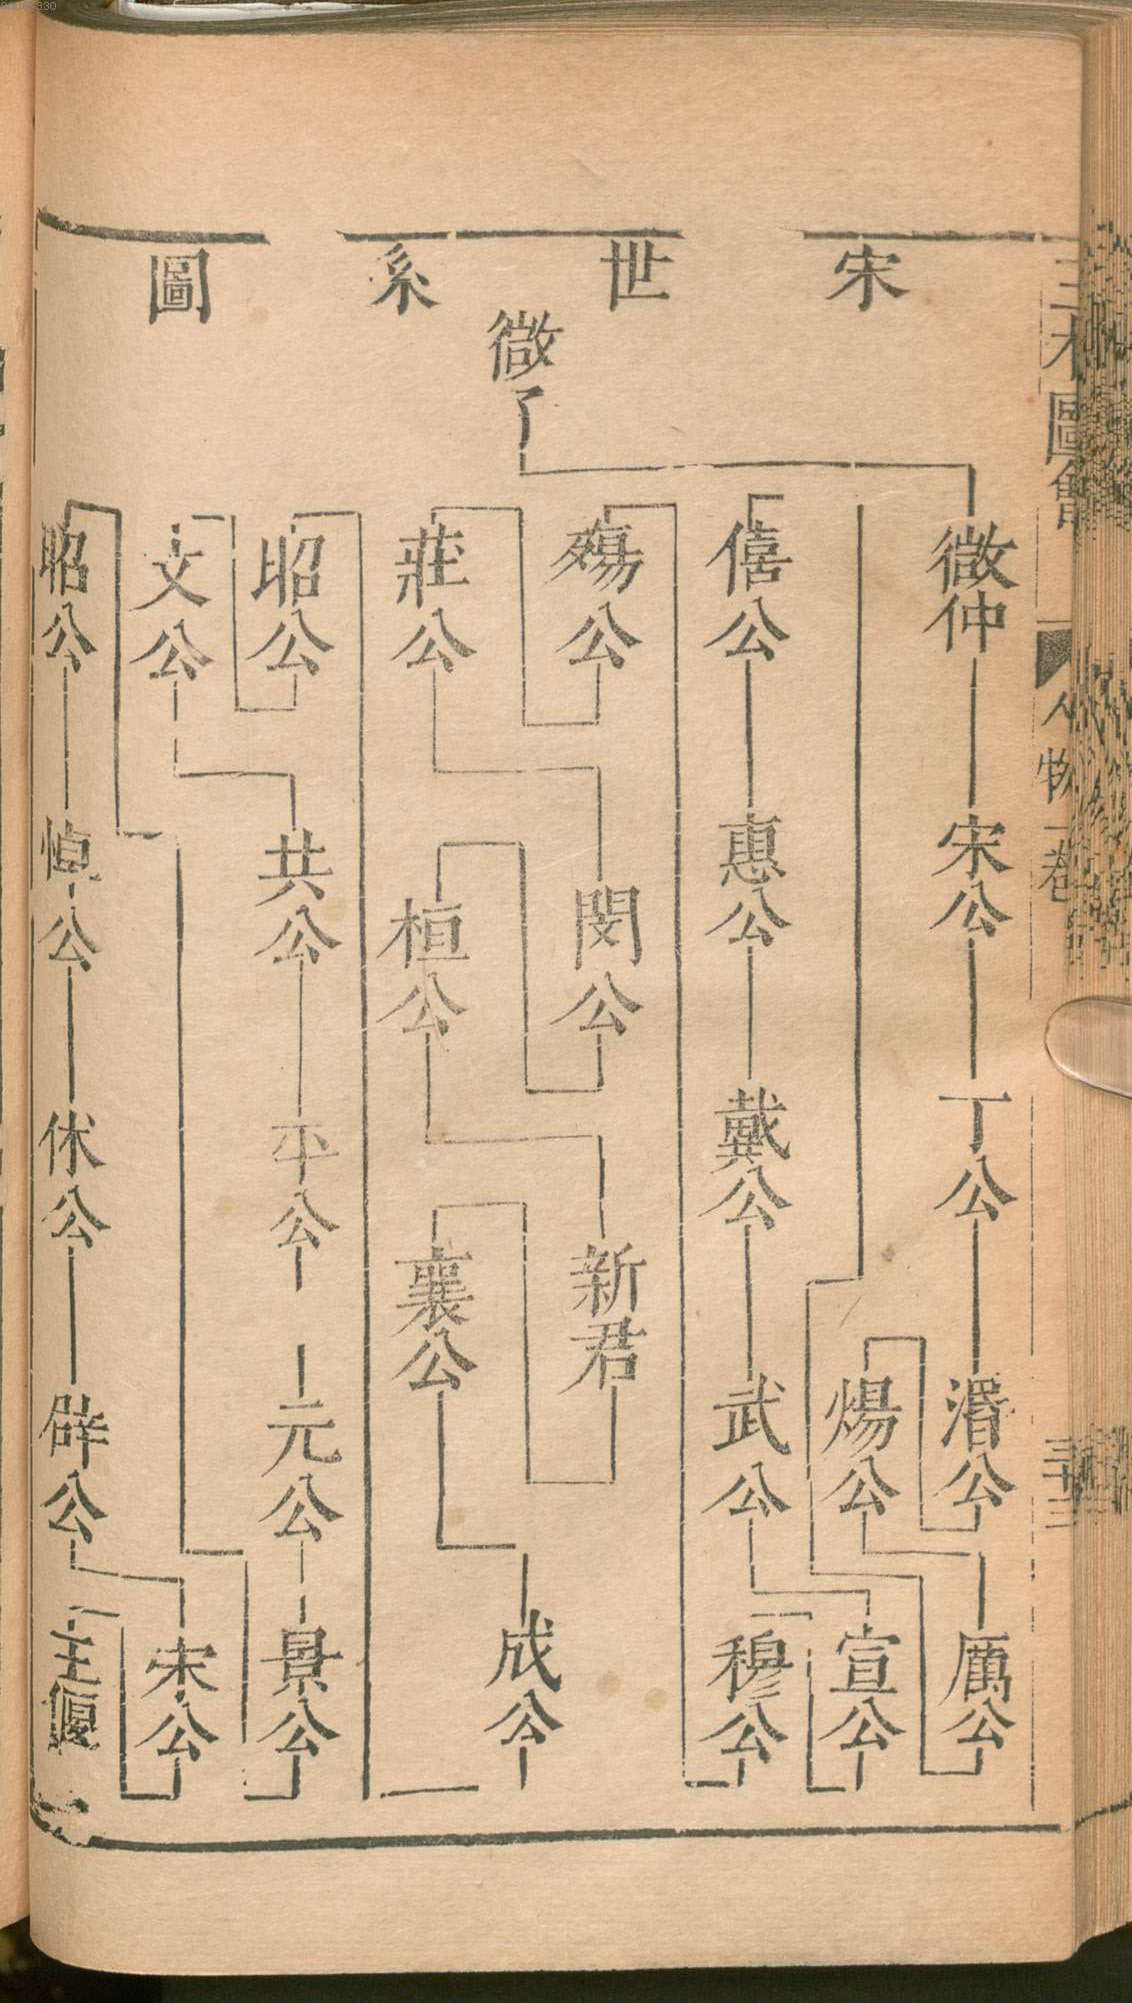 宋世系圖
微子
微仲
宋公
丁公
湣公
煬公
厲公
僖公
惠公
戴公
武公
宣公
穆公
殤公
莊公
閔公
桓公
新君
襄公
成公
昭公
文公
共公
平公
元公
景公
昭公
悼公
休公
辟公
宋公
王偃
三才圖會
人物一卷